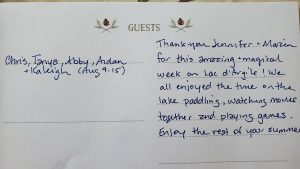 GUESTS
Chris, Tanya, Abby, Aidan
+ Kaleigh (Aug 9-15)
Thank you Jennifer + Marcin
for this amazing + magical
week on Lac d'Argile! We
all enjoyed the time on the
lake paddling, watching movies
together and playing games.
Enjoy the rest of your summer